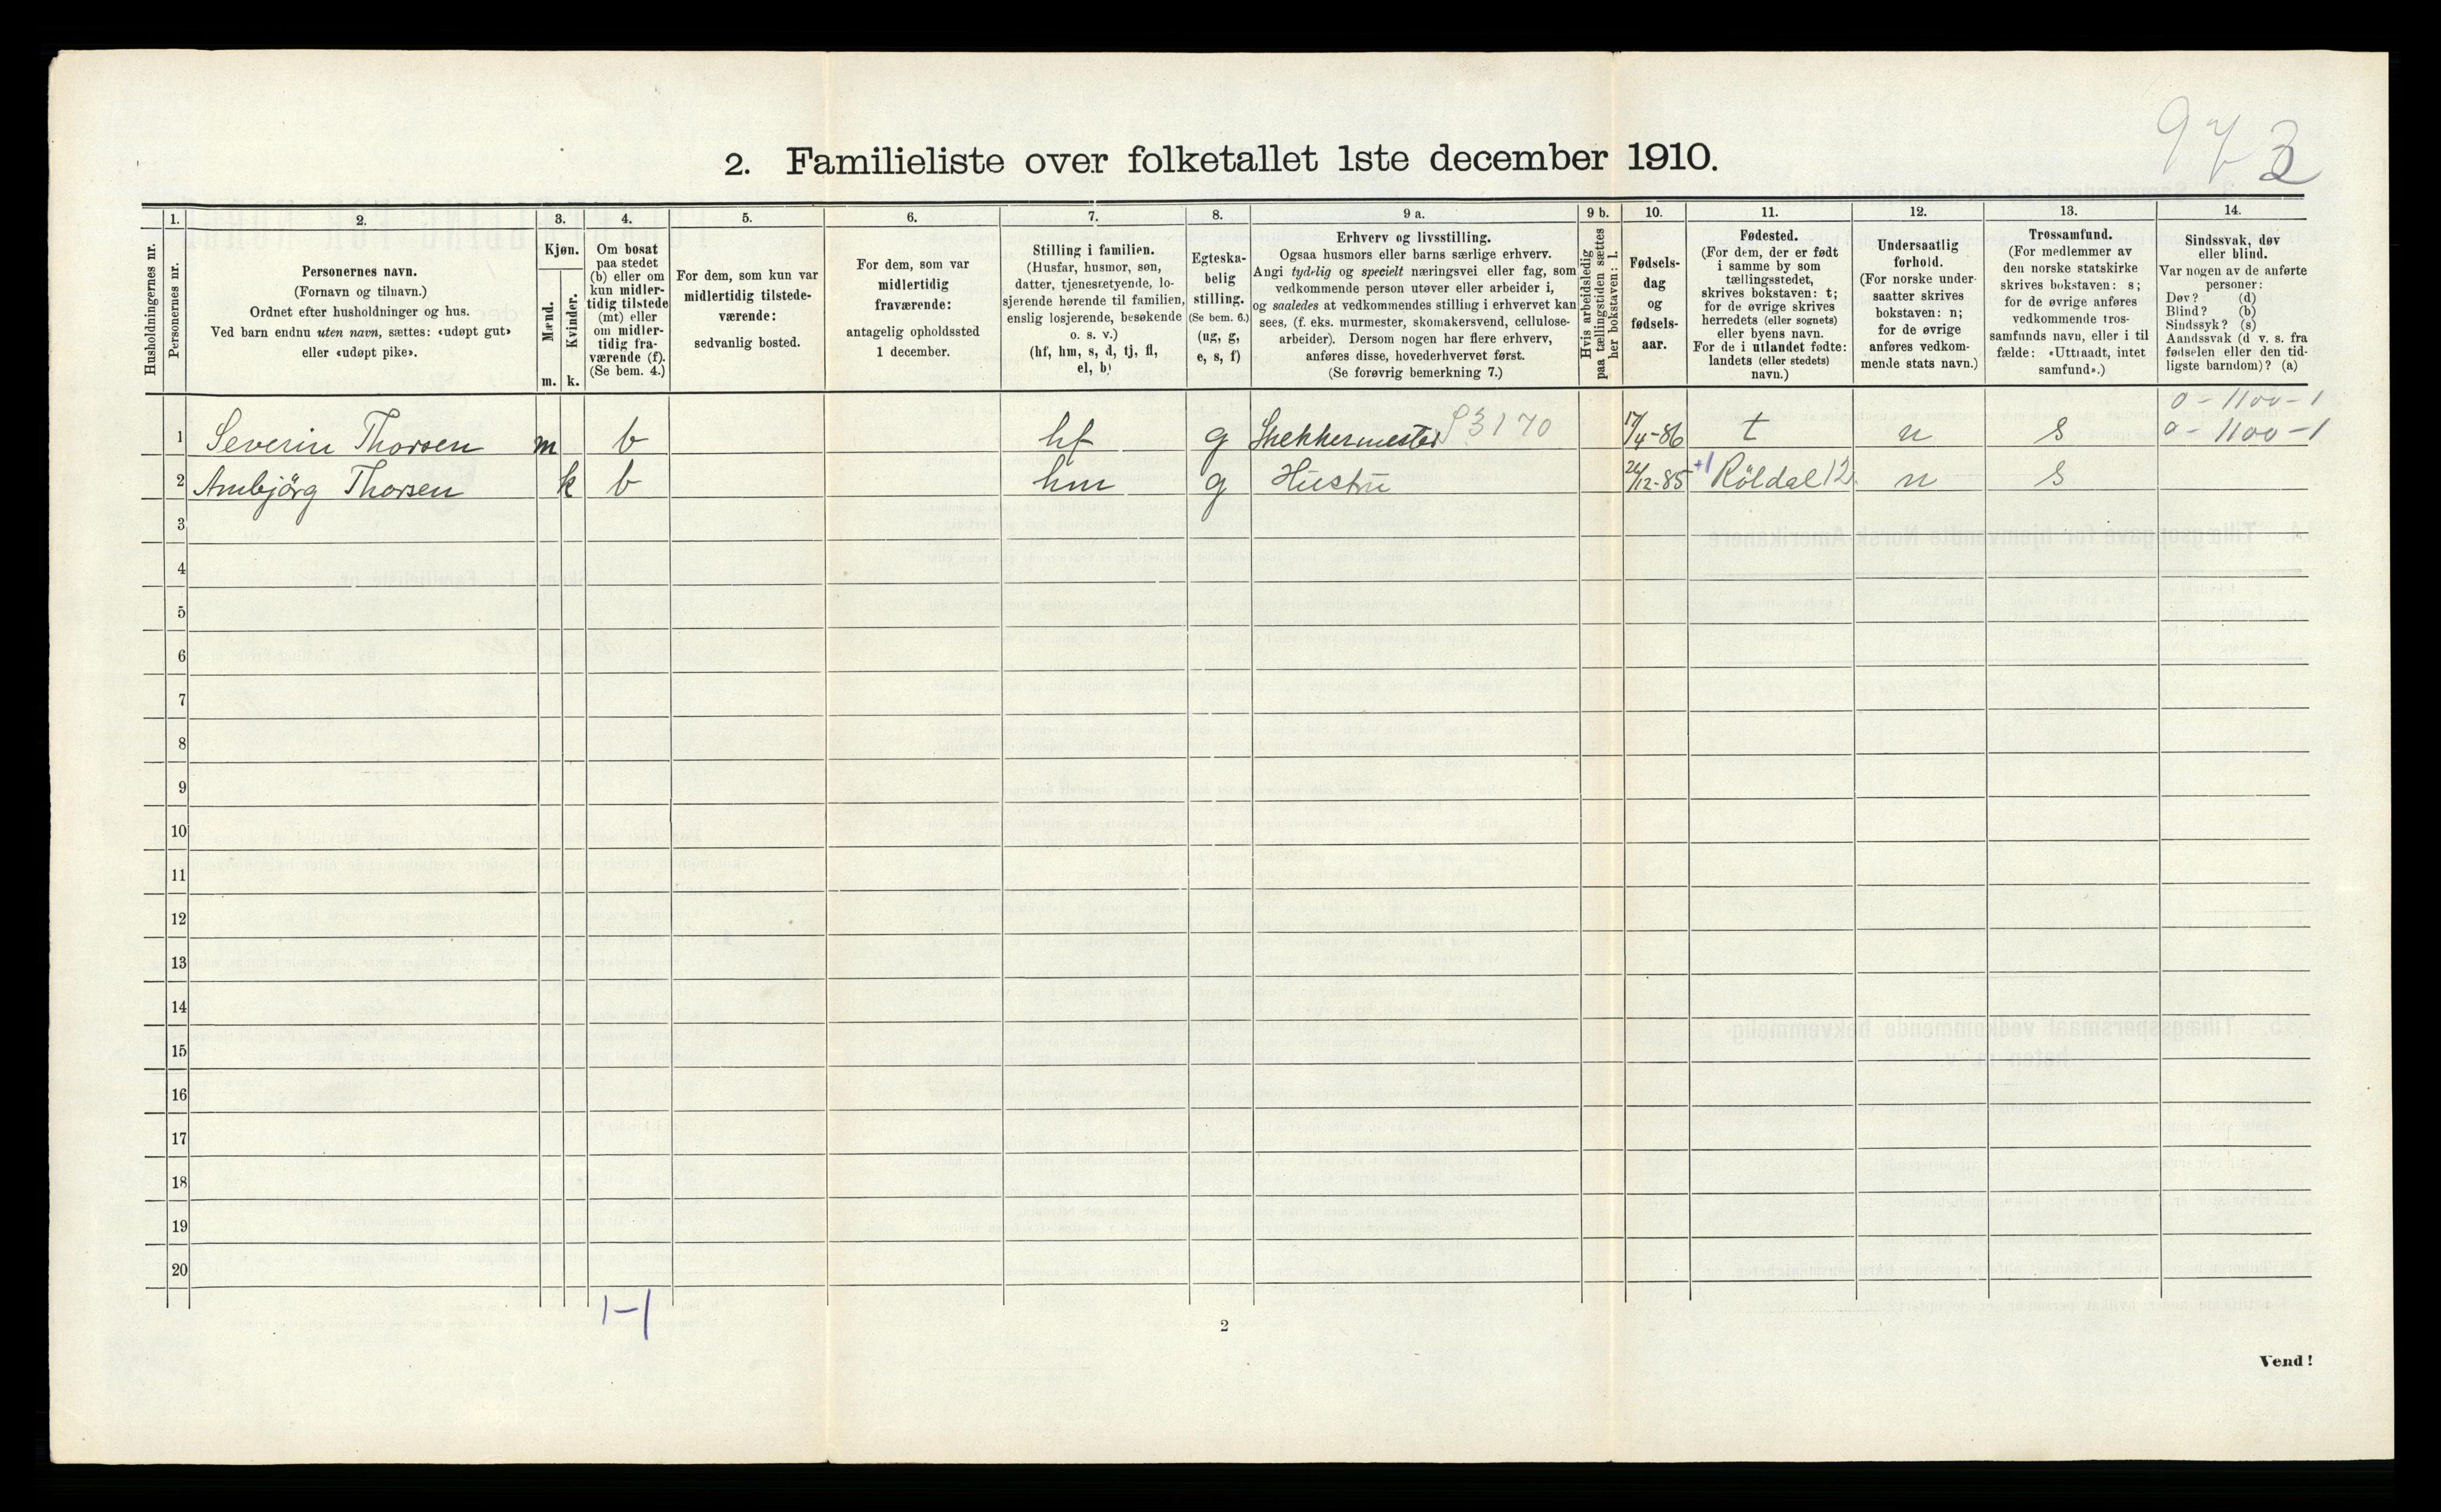 973
2. Familieliste over folketallet 1ste december 1910.
1. 2. 3. 4. 5. 6. 7. 8. 9 a. 9 b. 10. 11. 12. 13. 14.
Husholdningernes nr.
Personernes nr.
Personernes navn.
(Fornavn og tilnavn.)
Ordnet efter husholdninger og hus.
Ved barn endnu uten navn, sættes: «udøpt gut»
eller «udøpt pike».
Kjøn.
Mænd.
Kvinder.
m. k.
Om bosat
paa stedet
(b) eller om
kun midler-
tidig tilstede
(mt) eller
om midler-
tidig fra-
værende (f).
(Se bem. 4.)
For dem, som kun var
midlertidig tilstede-
værende:
sedvanlig bosted.
For dem, som var
midlertidig
fraværende:
antagelig opholdssted
1 december.
Stilling i familien.
(Husfar, husmor, søn,
datter, tjenestetyende, lo-
sjerende hørende til familien,
enslig losjerende, besøkende
o. s. v.)
(hf, hm, s, d, tj, fl,
el, b)
Egteska-
belig
stilling.
(Se bem. 6.)
(ug, g,
e, s, f)
Erhverv og livsstilling.
Ogsaa husmors eller barns særlige erhverv.
Angi tydelig og specielt næringsvei eller fag, som
vedkommende person utøver eller arbeider i,
og saaledes at vedkommendes stilling i erhvervet kan
sees, (f. eks. murmester, skomakersvend, cellulose-
arbeider). Dersom nogen har flere erhverv,
anføres disse, hovederhvervet først.
(Se forøvrig bemerkning 7.)
Hvis arbeidsledig
paa tællingstiden sættes
her bokstaven: l.
Fødsels-
dag
og
fødsels-
aar.
Fødested.
(For dem, der er født
i samme by som
tællingsstedet,
skrives bokstaven: t;
for de øvrige skrives
herredets (eller sognets)
eller byens navn.
For de i utlandet fødte:
landets (eller stedets)
navn.)
Undersaatlig
forhold.
(For norske under-
saatter skrives
bokstaven: n;
for de øvrige
anføres vedkom-
mende stats navn.)
Trossamfund.
(For medlemmer av
den norske statskirke
skrives bokstaven: s;
for de øvrige anføres
vedkommende tros-
samfunds navn, eller i til
fælde: «Uttraadt, intet
samfund».)
Sindssvak, døv
eller blind.
Var nogen av de anførte
personer:
Døv? (d)
Blind? (b)
Sindssyk? (s)
Aandssvak (d v. s. fra
fødselen eller den tid-
ligste barndom)? (a)
0 - 1100 - 1
1 Severin Thorsen m b hf g Snekkermester 3170 17/4-86 t n s 0 - 1100 - 1
2 Ambjörg Thorsen k b hm g Hustru /12-85 +1 Röldal 12 n s
3
4
5
6
7
8
9
10
11
12
13
14
15
16
17
18
19
20
1-1
2
Vend!